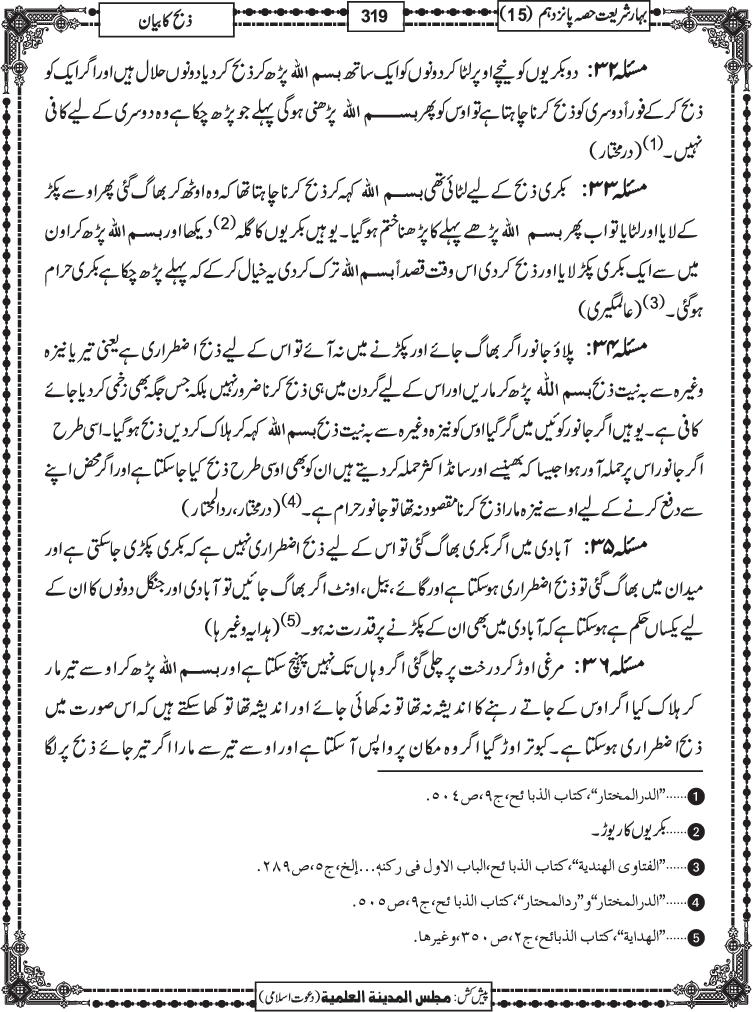 بہارِ شریعت حصہ پانزدہم (15)
319
ذبح کا بیان
مسئلہ ۳۲: دو بکریوں کو نیچے اوپر لٹا کر دونوں کو ایک ساتھ بسم اللہ پڑھ کر ذبح کر دیا دونوں حلال ہیں اور اگر ایک کو
ذبح کر کے فوراً دوسری کو ذبح کرنا چاہتا ہے تو اوس کو پھر بسم اللہ پڑھنی ہوگی پہلے جو پڑھ چکا ہے وہ دوسری کے لیے کافی
نہیں۔(1) (درمختار)
مسئلہ ۳۳: بکری ذبح کے لیے لٹائی تھی بسم اللہ کہہ کر ذبح کرنا چاہتا تھا کہ وہ اوٹھ کر بھاگ گئی پھر اوسے پکڑ
کے لایا اور لٹایا تو اب پھر بسم اللہ پڑھے پہلے کا پڑھنا ختم ہوگیا۔ یوہیں بکریوں کا گلہ(2) دیکھا اور بسم اللہ پڑھ کر اون
میں سے ایک بکری پکڑ لایا اور ذبح کر دی اس وقت قصداً بسم اللہ ترک کر دی یہ خیال کر کے کہ پہلے پڑھ چکا ہے بکری حرام
ہوگئی۔(3) (عالمگیری)
مسئلہ ۳۴: پلاؤ جانور اگر بھاگ جائے اور پکڑنے میں نہ آئے تو اس کے لیے ذبح اضطراری ہے یعنی تیر یا نیزہ
وغیرہ سے بہ نیت ذبح بسم اللہ پڑھ کر ماریں اور اس کے لیے گردن میں ہی ذبح کرنا ضرور نہیں بلکہ جس جگہ بھی زخمی کر دیا جائے
کافی ہے۔ یوہیں اگر جانور کوئیں میں گر گیا اوس کو نیزہ وغیرہ سے بہ نیت ذبح بسم اللہ کہہ کر ہلاک کر دیں ذبح ہوگیا۔ اسی طرح
اگر جانور اس پر حملہ آور ہوا جیسا کہ بھینسے اور سانڈ اکثر حملہ کر دیتے ہیں ان کو بھی اوسی طرح ذبح کیا جاسکتا ہے اور اگر محض اپنے
سے دفع کرنے کے لیے اوسے نیزہ مارا ذبح کرنا مقصود نہ تھا تو جانور حرام ہے۔(4) (درمختار، ردالمحتار)
مسئلہ ۳۵: آبادی میں اگر بکری بھاگ گئی تو اس کے لیے ذبح اضطراری نہیں ہے کہ بکری پکڑی جاسکتی ہے اور
میدان میں بھاگ گئی تو ذبح اضطراری ہوسکتا ہے اور گائے، بیل، اونٹ اگر بھاگ جائیں تو آبادی اور جنگل دونوں کا ان کے
لیے یکساں حکم ہے ہوسکتا ہے کہ آبادی میں بھی ان کے پکڑنے پر قدرت نہ ہو۔(5) (ہدایہ وغیرہا)
مسئلہ ۳۶: مرغی اوڑ کر درخت پر چلی گئی اگر وہاں تک نہیں پہنچ سکتا ہے اور بسم اللہ پڑھ کر اوسے تیر مار
کر ہلاک کیا اگر اوس کے جاتے رہنے کا اندیشہ نہ تھا تو نہ کھائی جائے اور اندیشہ تھا تو کھا سکتے ہیں کہ اس صورت میں
ذبح اضطراری ہوسکتا ہے۔ کبوتر اوڑ گیا اگر وہ مکان پر واپس آسکتا ہے اور اوسے تیر سے مارا اگر تیر جائے ذبح پر لگا
1......"الدرالمختار"،کتاب الذبائح،ج۹،ص۵۰۴.
2......بکریوں کا ریوڑ۔
3......"الفتاوی الهندیة"،کتاب الذبائح،الباب الاول فی رکنه...إلخ،ج۵،ص۲۸۹.
4......"الدرالمختار"و"ردالمحتار"،کتاب الذبائح،ج۹،ص۵۰۵.
5......"الهدایة"،کتاب الذبائح،ج۲،ص۳۵۰،وغیرها.
پیش کش: مجلس المدینة العلمیة (دعوت اسلامی)